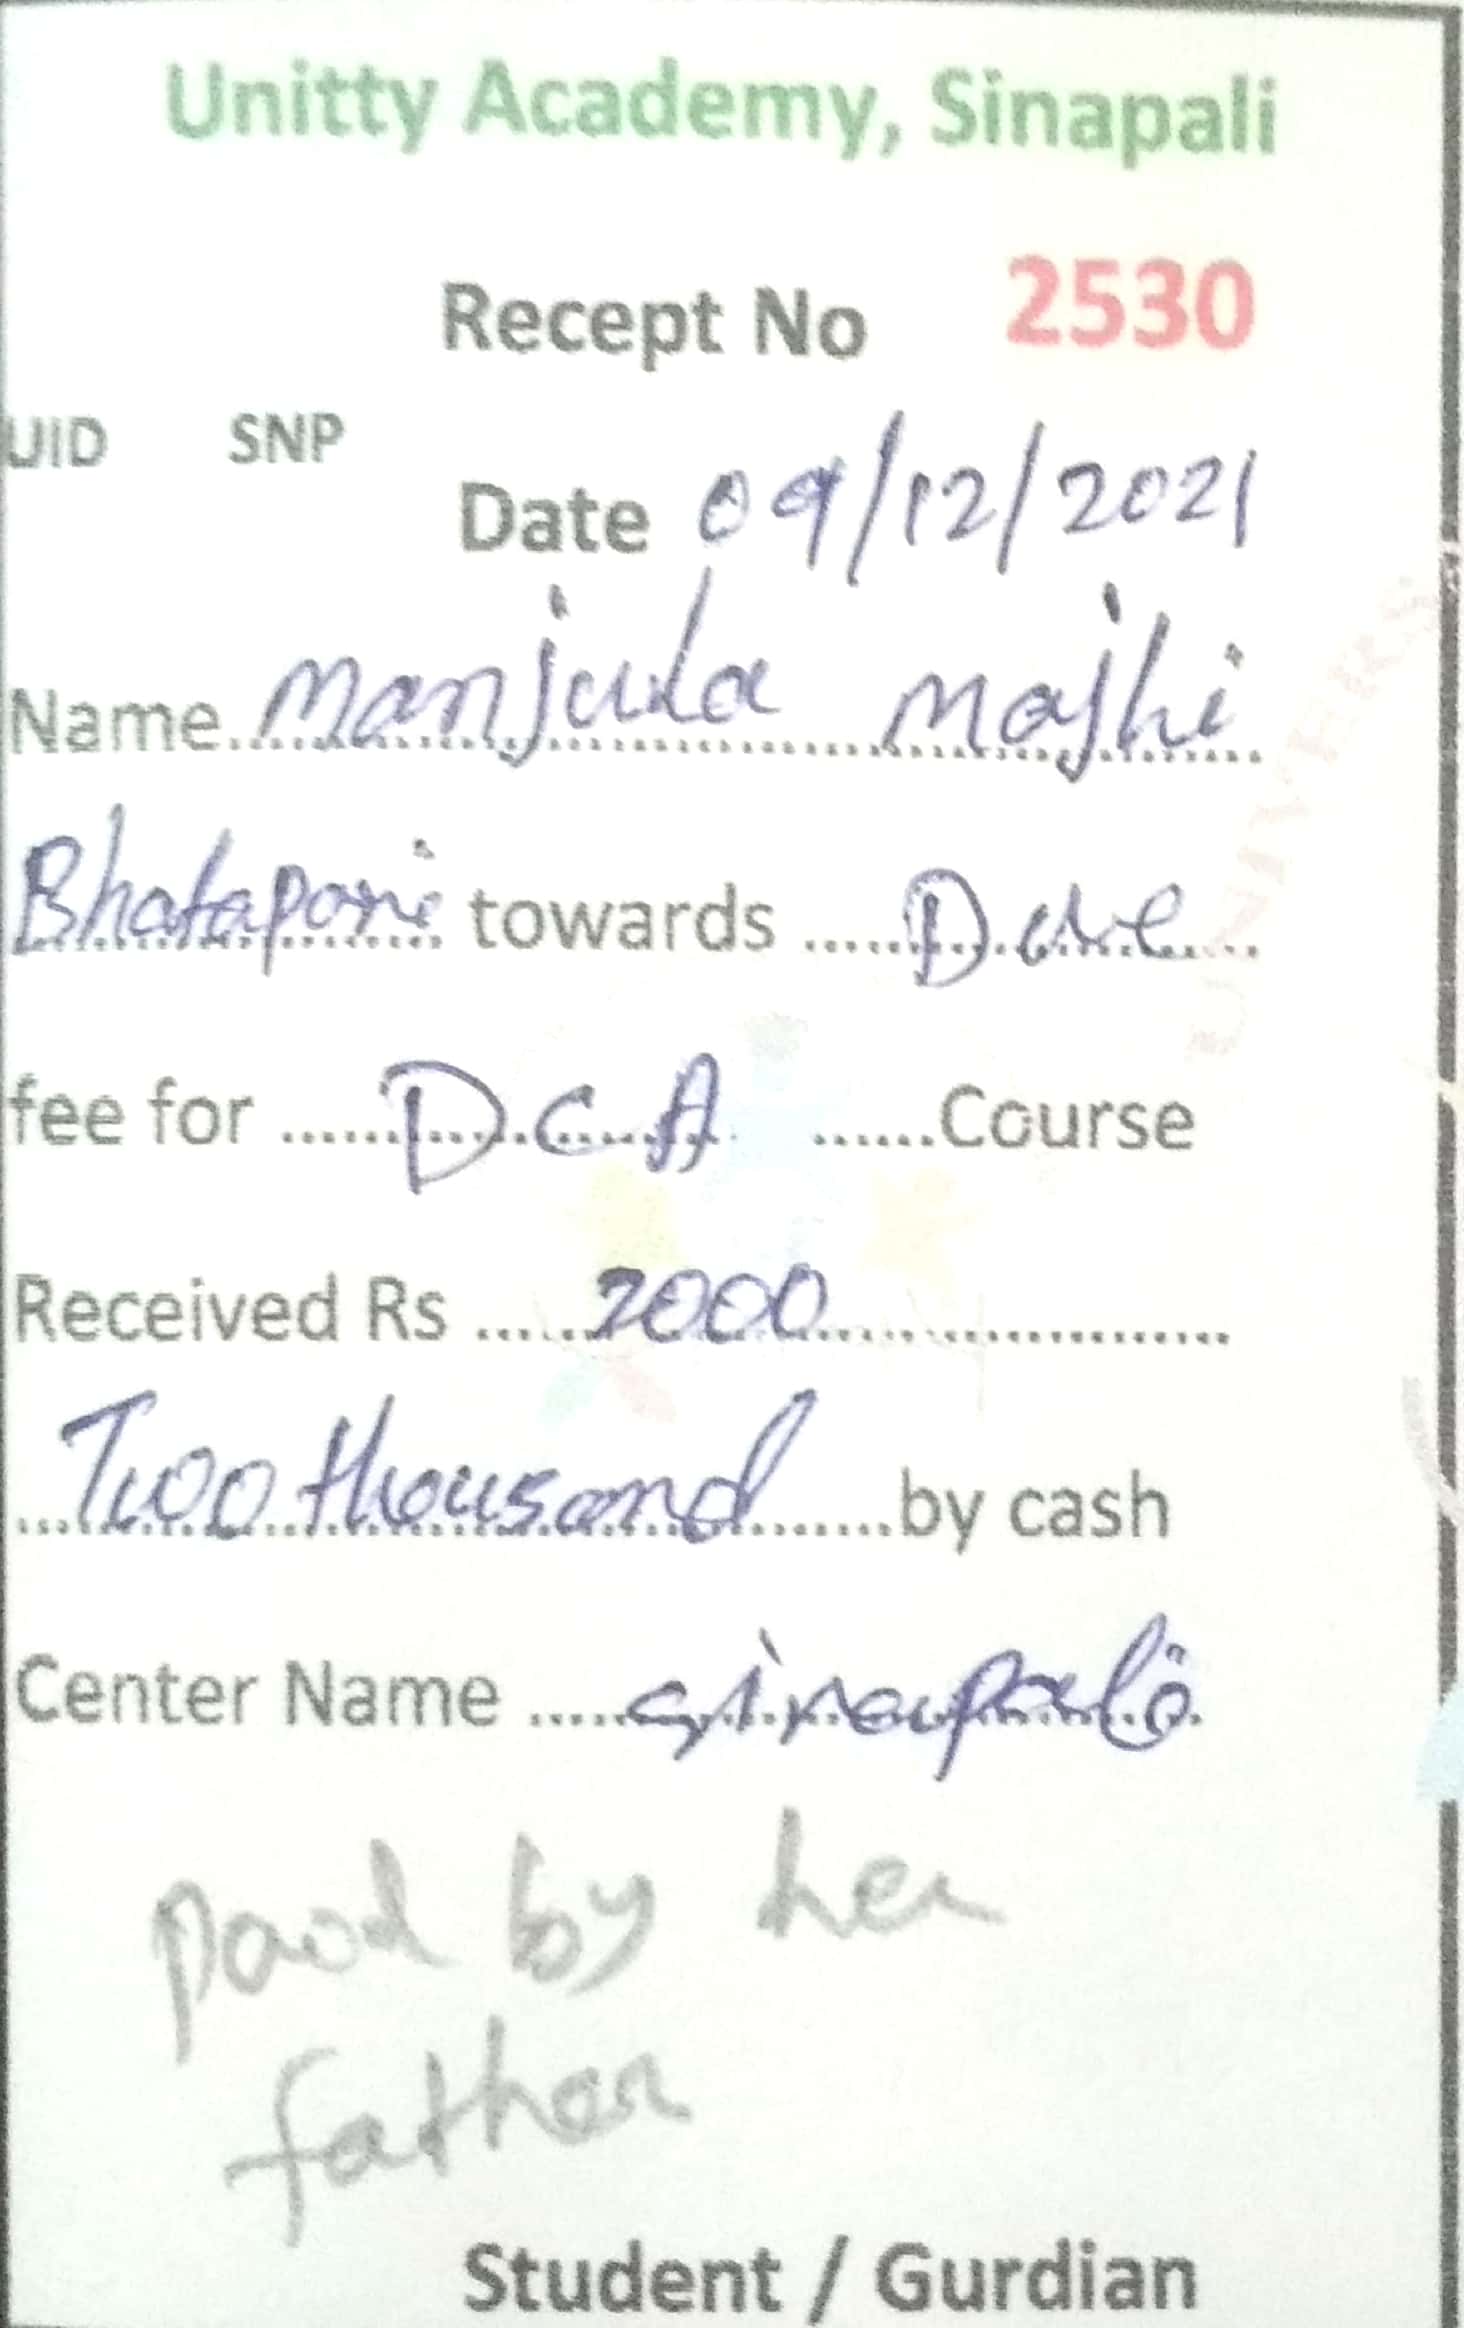 Unitty Academy, Sinapali
Recept No 2530
UID SNP
Date 09/12/2021
Name Manjula Majhi
Bhatapani towards Due
fee for D.C.A Course
Received Rs 2000
Two thousand by cash
Center Name Sinapali
paid by her
father
Student / Gurdian